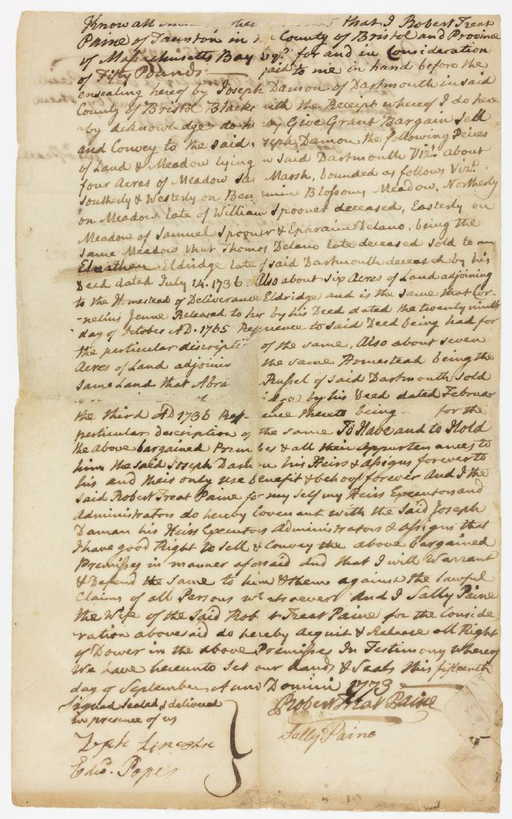 Know all that I Robert Treat
Paine of Taunton in County of Bristol and Province
of Massachusetts Bay for and in Consideration
of Fifty Pounds paid to me in hand before the
ensealing hereof by Joseph Damon of Dartmouth in said
County of Bristol with the Receipt whereof I do here
by acknowledge do Give Grant Bargain Sell
and Convey to the said Joseph Damon the following Peices
of Land & Meadow lying in said Dartmouth Vizt. about
four Acres of Meadow Marsh, bounded as follows Vizt.
Southerly & Westerly on Blossoms Meadow, Northerly
on Meadow late of William Spooner deceased, Easterly on
Meadow of Samuel Spooner & Ephraim Delano, being the
same Meadow that Thomas Delano late deceased sold to
Elnathan Eldridge late of said Dartmouth deceased by his
Deed dated July 14. 1736 Also about six Acres of Land adjoining
to the Homestead of Deliverance Eldridge and is the same that Cor-
-nelius Jenne Released to her by his Deed dated the twenty ninth
day of October AD. 1765 Reference to said Deed being had for
the particular discription of the same, Also about seven
Acres of Land adjoining the same Homestead being the
same Land that Abra Russel of said Dartmouth sold
by his Deed dated February
the third AD 1736 Reference thereto being for the
particular description of the same To Have and to Hold
the above bargained Premises & all their Appurtenances to
him the said Joseph Damon his Heirs & Assigns forever to
his and their only use benefit & behoof forever And I the
said Robert Treat Paine for my self my Heirs Executors and
Administrators do hereby Covenant with the said Joseph
Daman his Heirs Executors Administrators & Assigns that
I have good Right to Sell & Convey the above Bargained
Premises in manner aforsaid and that I will Warrant
& Defend the Same to him & them against the lawful
Claims of all Persons whatsoever and I Sally Paine
the Wife of the said Robert Treat Paine for the Conside
ration abovesaid do hereby Acquit & Release all Right
of Dower in the above Premises In Testimony whereof
We have hereunto Set our hands & Seals this fifteenth
day of September Anno Domini 1773
Signed Sealed & delivered
in presence of us
Robert Treat Paine
Sally Paine
Lincoln
Edwd. Pope